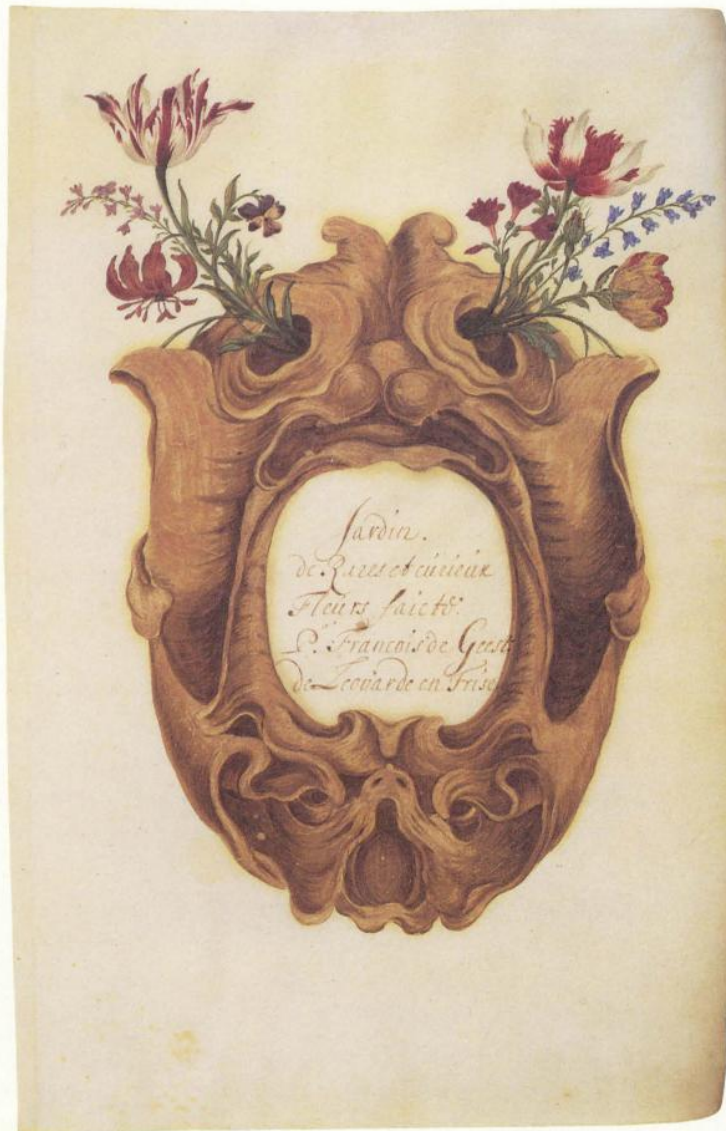 Jardin.
de Rares et curieux
Fleurs faicte.
P. Francois de Geest
de Leouarde en Frise